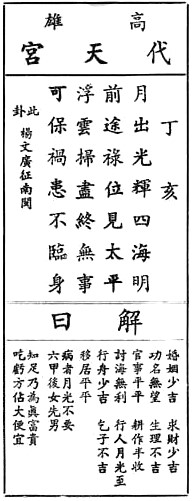 高雄
代天宮
丁亥
月出光輝四海明
前途祿位見太平
浮雲掃盡終無事
可保禍患不臨身
此卦 楊文廣征南閩
解曰
婚姻少吉 求財少吉
功名無望 生理不吉
官事平平 耕作半收
討海無利 行人月光至
行舟少吉 乞子不吉
移居平平
病者月光不要
六甲後女先男
知足乃為眞富貴
吃虧方佔大便宜